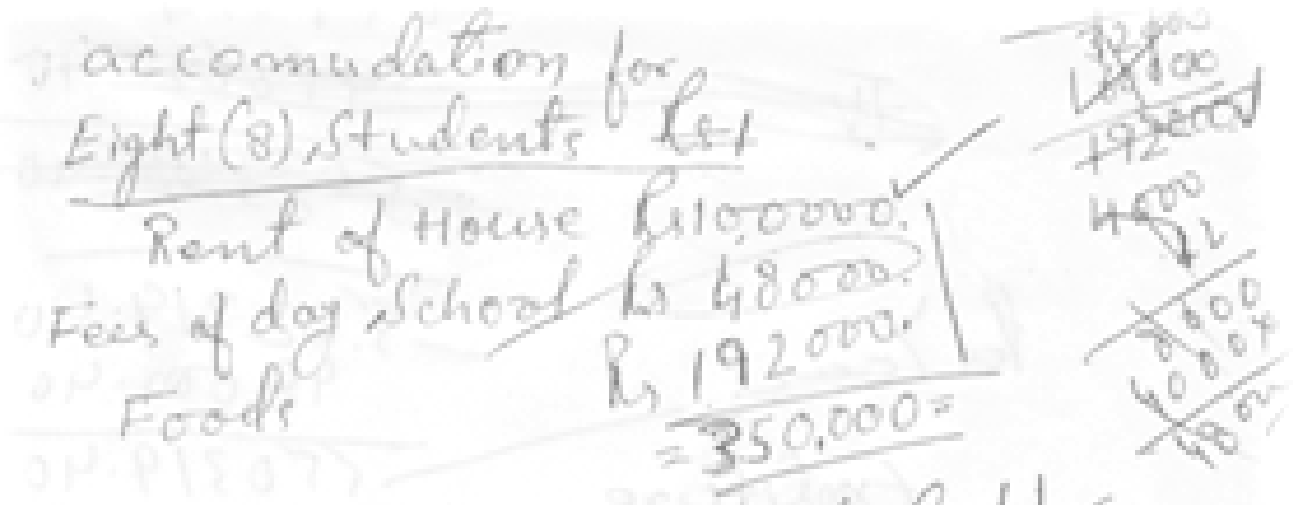 accomudation for
Eight (8), Students Rs+
Rent of House Rs 100000.
Fees of day School Rs 48000.
Foods Rs 192000.
= 350,000 =
192000
4000
12
8000
4000x
4800